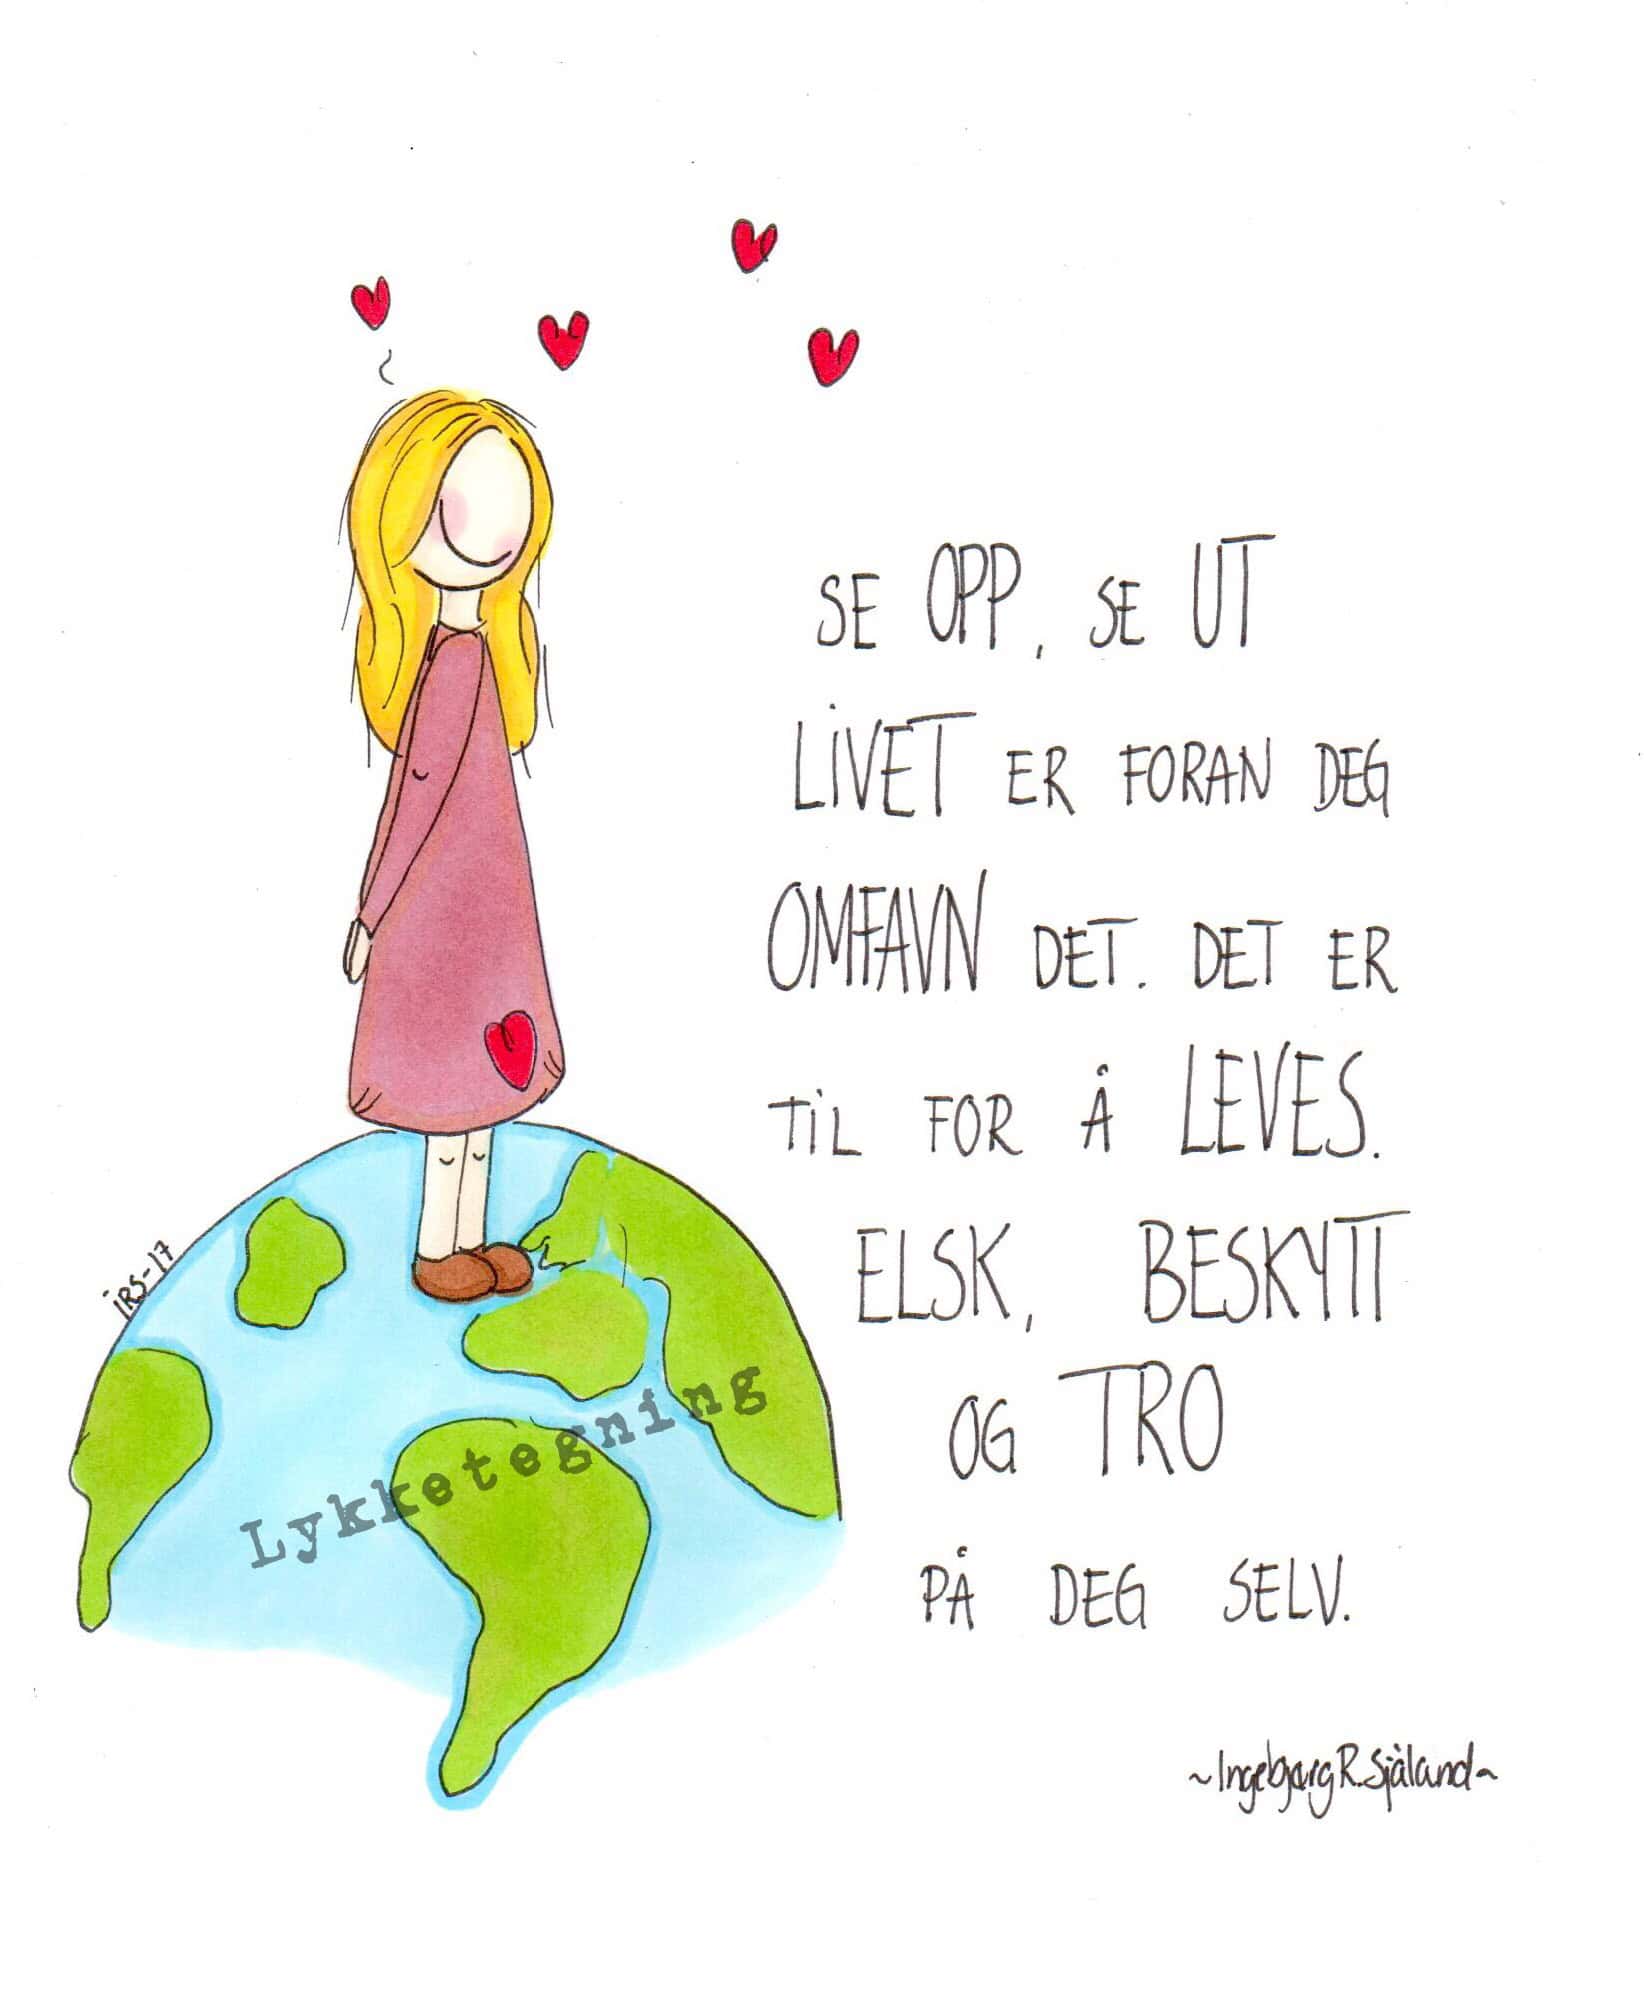 SE OPP, SE UT
LIVET ER FORAN DEG
OMFAVN DET. DET ER
TIL FOR Å LEVES.
ELSK, BESKYTT
OG TRO
PÅ DEG SELV.
~Ingebjørg R. Sjåland~
iRS-17
Lykketegning